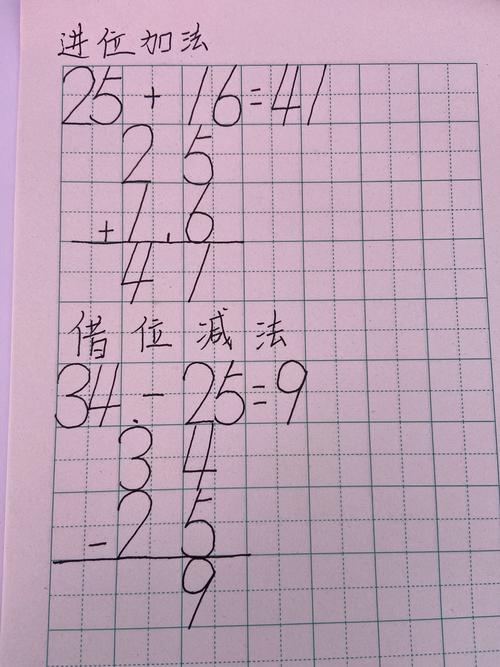 进位加法
25+16=41
25
+1.6
41
借位减法
34.-25=9
34
-25
9